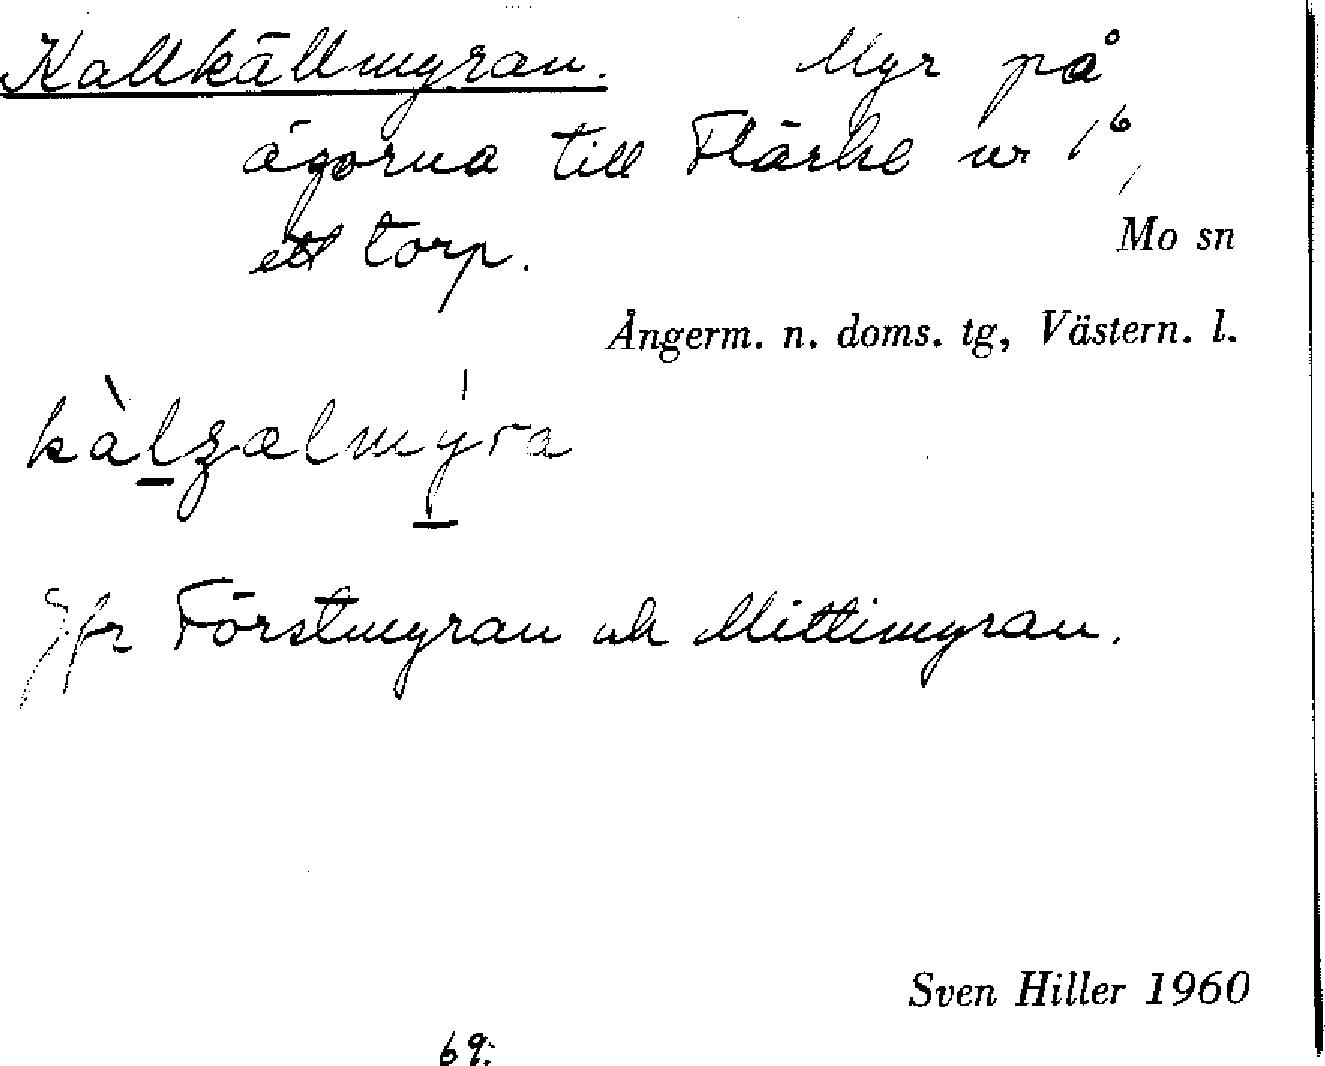 Kallkällmyran. Myr på
ägorna till Flärke nr 1⁶,
ett torp.
Mo sn
Ångerm. n. doms. tg, Västern. l.
Jfr Förstmyran och Mittimyran.
Sven Hiller 1960
69: